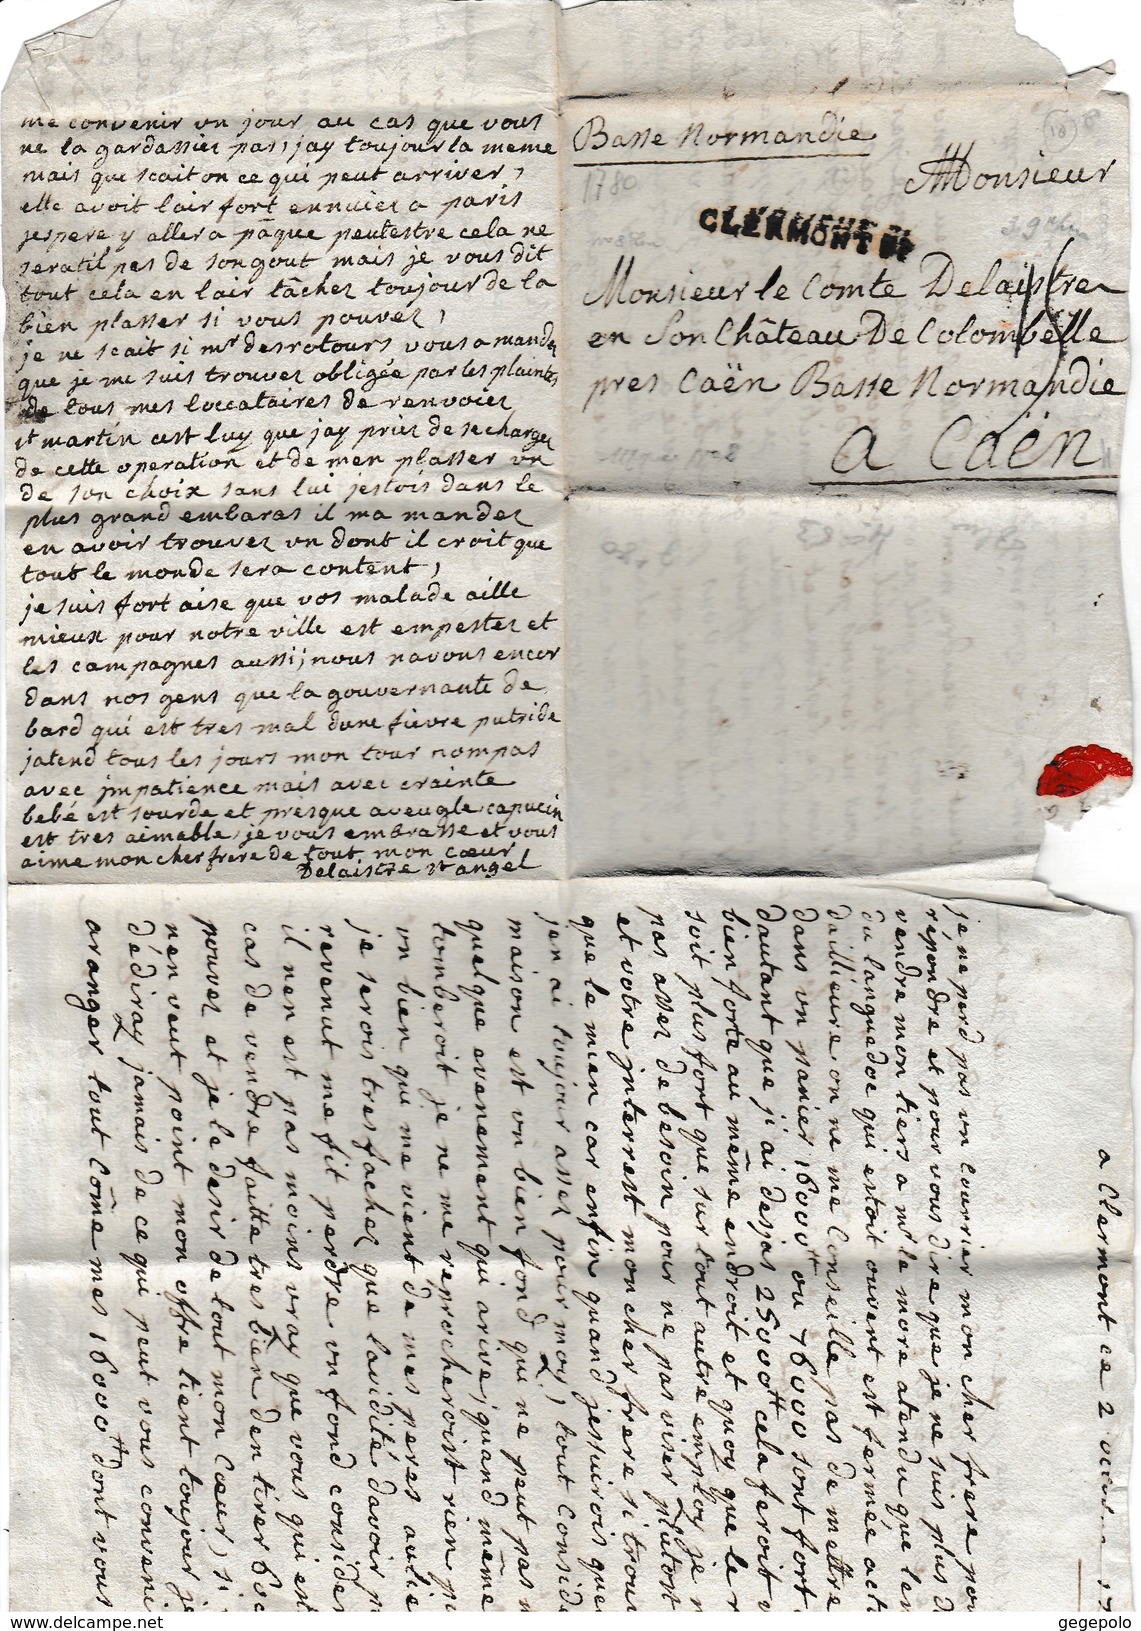 me convenir un jour au cas que vous
ne la gardassiez pas, jay toujour la meme
mais que scait on ce qui peut arriver,
elle avoit lair fort ennuiez a paris
jespere y aller a pâque peutestre cela ne
seratil pas de son gout mais je vous dit
tout cela en lair tâchez toujour de la
bien plasser si vous pouvez,
je ne scait si mr desrotours vous a mandez
que je me suis trouvez obligée par les plaintes
de tous mes loccataires de renvoiez
st martin cest luy que jay priez de se charger
de cette operation et de men plasser un
de son choix sans lui jestois dans le
plus grand embaras il ma mandez
en avoir trouvez un dont il croit que
tout le monde sera content,
je suis fort aise que vos malade aille
mieux pour notre ville est empestez et
les campagnes aussi, nous navons encor
dans nos gens que la gouvernante de
bard qui est tres mal dune fievre putride
jatend tous les jours mon tour nompas
avec impatience mais avec crainte
bebé est sourde et presque aveugle, capucin
est tres aimable, je vous embrasse et vous
aime mon cher frere de tout mon cœur
Delaistre st angel
Basse Normandie
18
Monsieur
1780
CLERMONT
Monsieur le Comte Delaistre
en Son Château De Colombelle
pres Caën Basse Normandie
a Caën
a Clermont ce 2
je ne perd pas un courrier mon cher frere pou
répondre et pour vous dire que je ne suis plus d
vendre mon tiers a mr le more atendu que len
du languedoc qui estoit ouvert est fermée act
dailleurs on ne me conseille pas de mettre
dans un panier 16000tt ou 46000 sont fort
dautant que j'ai desjas 25000tt cela feroit
bien forte au même endroit et quoy que le r
soit plus fort que sur tout autre employ je n
pas assez de besoin pour ne pas viser plutost
et votre interrest mon cher frere si trou
que le mien car enfin quand jessuirois que
jen ai toujour assez pour moy, tout conside
maison est un bien fond qui ne peut pas m
quelque evenement qui arive, quand même
tomberoit je ne me reprocherois rien p
un bien qui me vient de mes peres aulie
je serois tres fachez que lavidité davoir p
revenut me fit perdre un fond consider
il nen est pas moins vray que vous qui es
cas de vendre faitte tres bien den tirer 60
pouvez et je le desir de tout mon cœur, si
nen veut point mon offre tient toujour je
dédiray jamais de ce qui peut vous conveni
aranger tout côme mes 16000tt dont vous
gegepolo